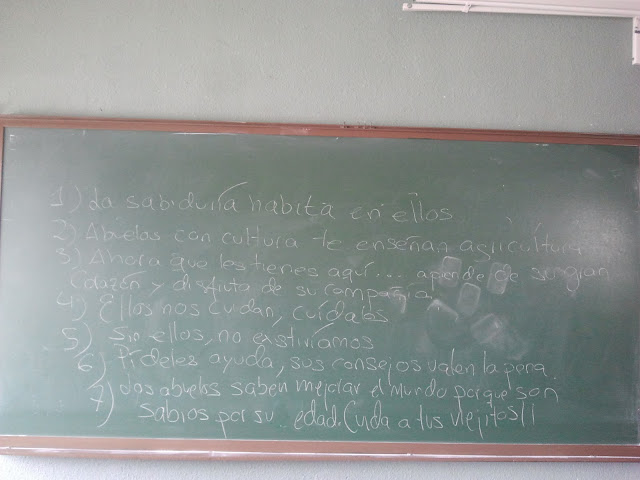 1) La sabiduría habita en ellos
2) Abuelos con cultura te enseñan agricultura
3) Ahora que les tienes aquí... aprende de su gran
Corazón y disfruta de su compañía.
4) Ellos nos cuidan, cuídalos
5) Sin ellos, no existiríamos
6) Pídeles ayuda, sus consejos valen la pena
7) Los abuelos saben mejorar el mundo porque son
sabios por su edad. Cuida a tus viejitos!!